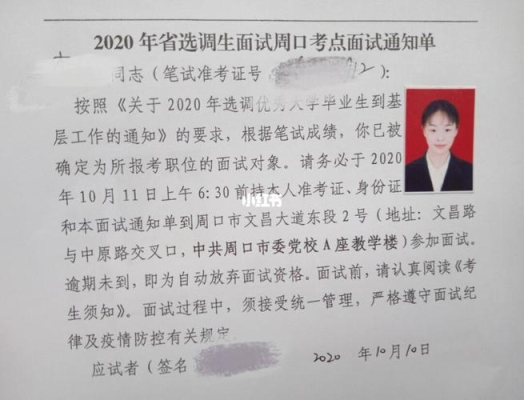 2020 年省选调生面试周口考点面试通知单
同志（笔试准考证号 2）：
按照《关于 2020 年选调优秀大学毕业生到基
层工作的通知》的要求，根据笔试成绩，你已被
确定为所报考职位的面试对象。请务必于 2020
年 10 月 11 日上午 6:30 前持本人准考证、身份证
和本面试通知单到周口市文昌大道东段 2 号（地址：文昌路
与中原路交叉口，中共周口市委党校 A 座教学楼）参加面试。
逾期未到，即为自动放弃面试资格。面试前，请认真阅读《考
生须知》。面试过程中，须接受统一管理，严格遵守面试纪
律及疫情防控有关规定
应试者（签名 2020 年 10月 10日
小红书